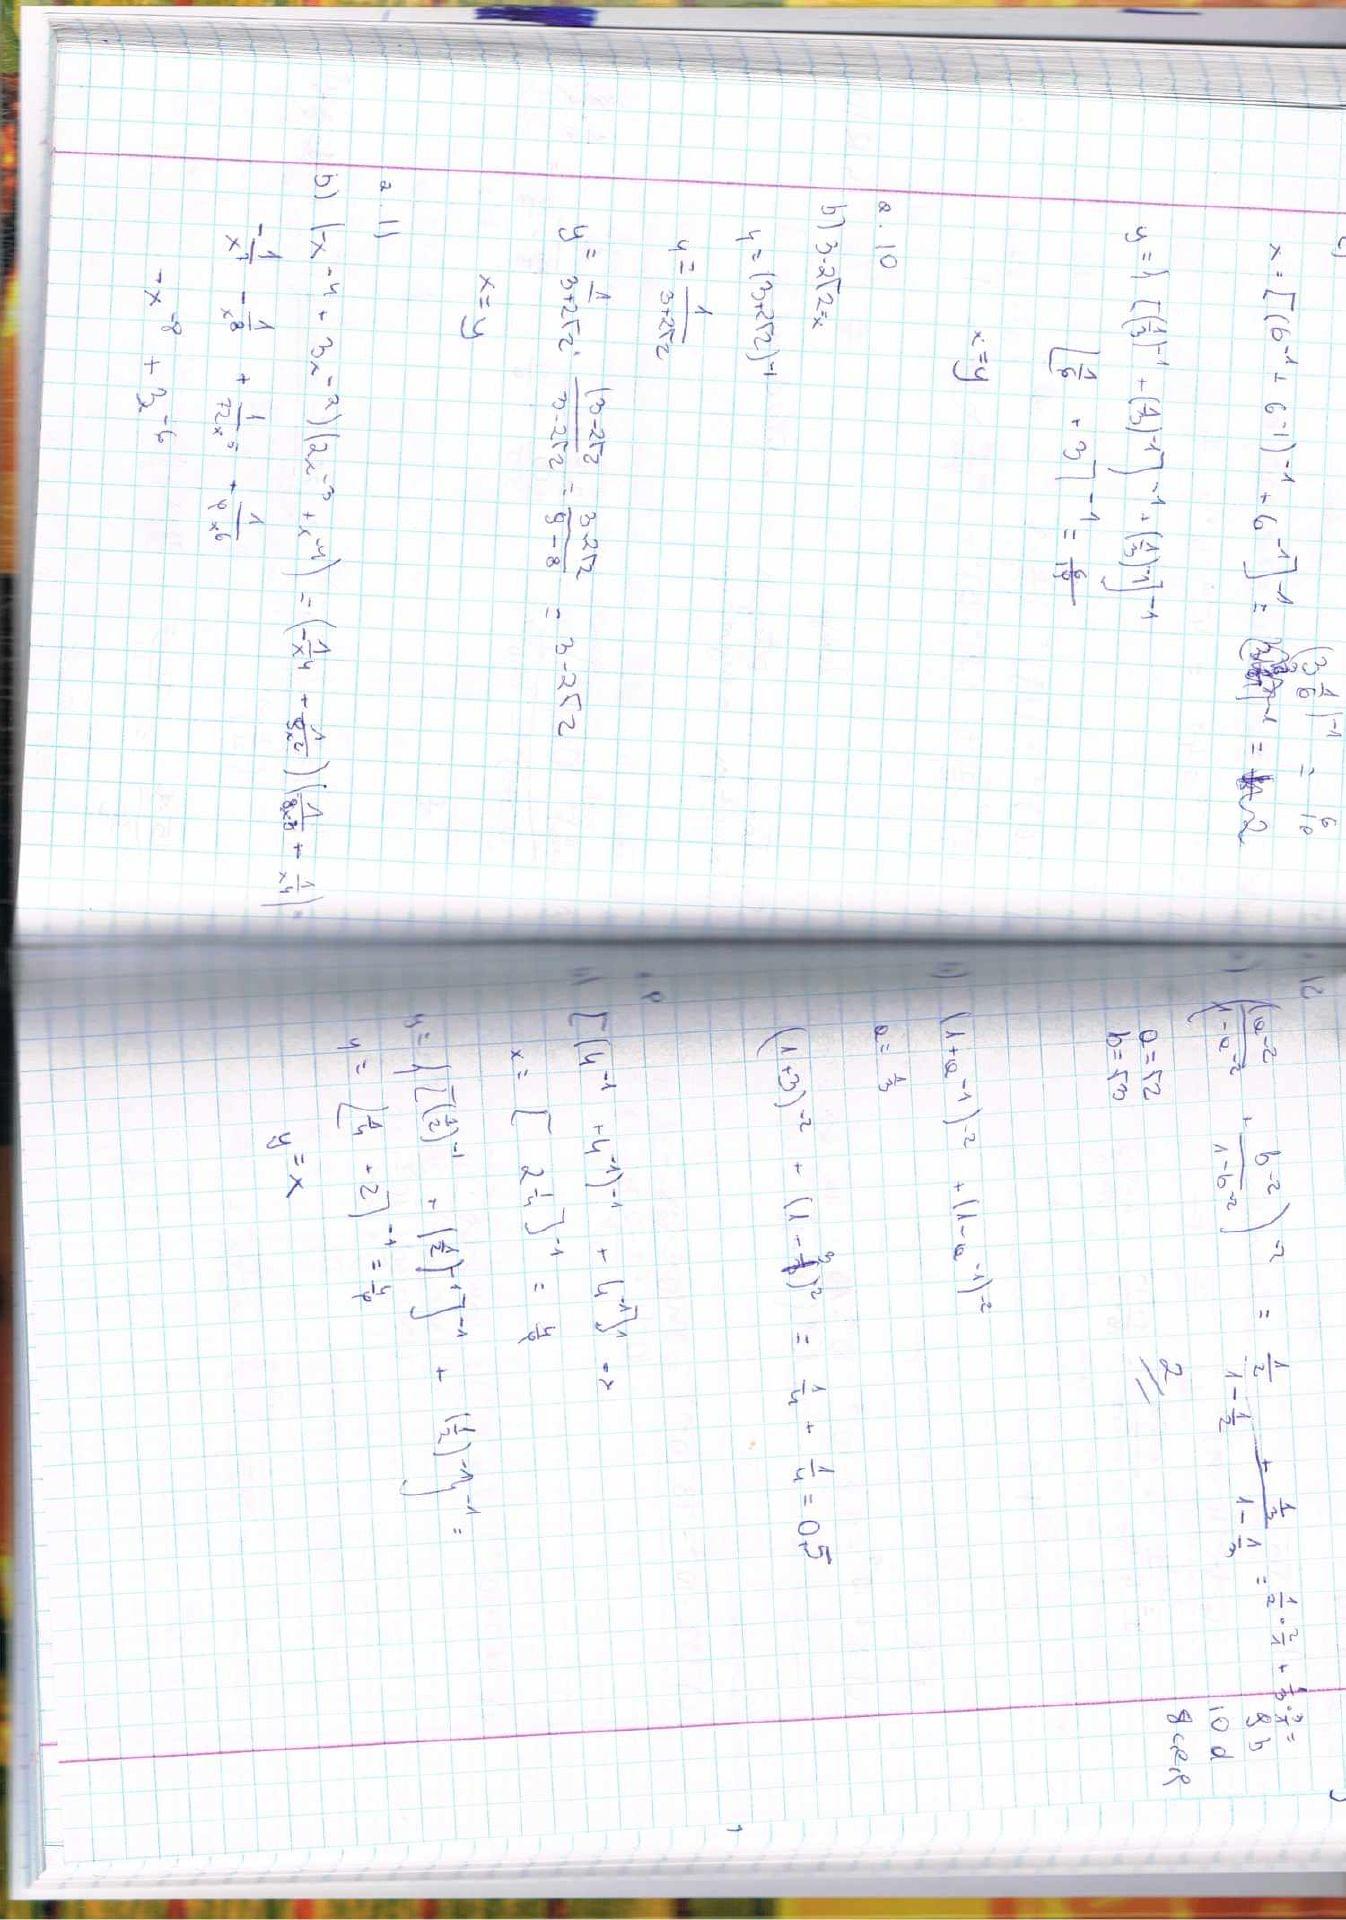 c)
x = [(6⁻¹ + 6⁻¹)⁻¹ + 6⁻¹]⁻¹ = (3 1/6)⁻¹ = 6/19
y = {[(1/3)⁻¹ + (1/3)⁻¹]⁻¹ + (1/3)⁻¹}⁻¹
[1/6 + 3]⁻¹ = 6/19
x = y
a. 10
b) 3-2√2 = x
y = (3+2√2)⁻¹
y = 1/(3+2√2)
y = 1/(3+2√2) · (3-2√2)/(3-2√2) = (3-2√2)/(9-8) = 3-2√2
x = y
a. 11
b) (-x⁻⁴ + 3x⁻²)(2x⁻³ + x⁻⁴) =
-x⁻⁸ + 3x⁻⁶
12
(a⁻²/(1-a⁻²) + b⁻²/(1-b⁻²))⁻² = (1/2)/(1-1/2) + (1/3)/(1-1/3) = 1/2 · 2/1 + 1/3 ·
a = √2
b = √3
2
8 b
10 d
8 c e f
(1+a⁻¹)⁻² + (1-a⁻¹)⁻²
a = 1/3
(1+3)⁻² + (1-3)⁻² = 1/4 + 1/4 = 0,5
[(4⁻¹ + 4⁻¹)⁻¹ + 4⁻¹]⁻¹
x = [2 1/4]⁻¹ = 4/9
y = {[(1/2)⁻¹ + (1/2)⁻¹]⁻¹ + (1/2)⁻¹}⁻¹ =
y = [1/4 + 2]⁻¹ = 4/9
y = x